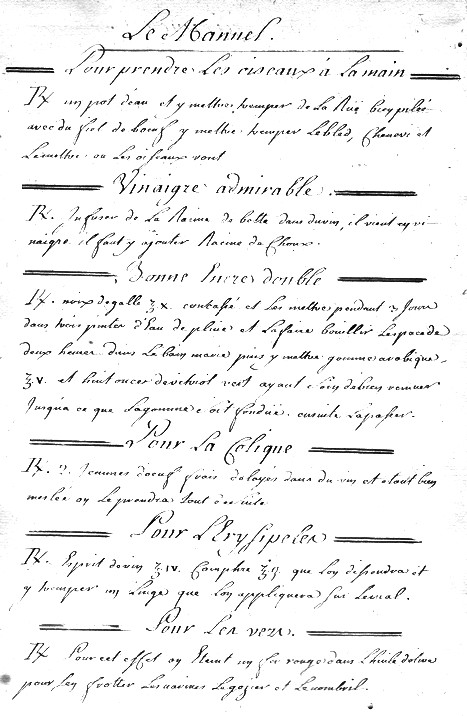 Le Manuel.
Pour prendre Les oiseaux à La main
℞ un pot d'eau et y mettre tremper de La Rüe bien pilée
avec du fiel de bœuf y mettre tremper Lebled, Chenevi et
Lemettre ou Les oiseaux vont
Vinaigre admirable.
℞. Infuser de La Racine de bette dans du vin, il vient en vi-
naigre il faut y ajouter Racine de Choux.
Bonne Encre double
℞. noix de galle ℥ x. concassé et Les mettre pendant 3 Jours
dans trois pintes d'Eau de pluie et Lafaire bouillir Lespace de
deux heures dans Le bain marie puis y mettre gomme arabique
℥ v. et huit onces de vitriol vert ayant soin de bien remuer
Jusqua ce que Lagomme soit fondüe. ensuite Lapasser.
Pour La Colique
℞. 2. Jeaunes d'oeuf frais delayés dans du vin et etant bien
meslée on Le prendra tout de suite
Pour L'Erysipeles
℞. Esprit de vin ℥ iv. Camphre que Lon dissoudra et
y tremper un Linge que Lon appliquera sur Le mal.
Pour Les vers.
℞ Pour cet effet on Eteint un fer rouge dans L'huile d'olive
pour, Les frotter Les narines Le gozier et Le nombril.